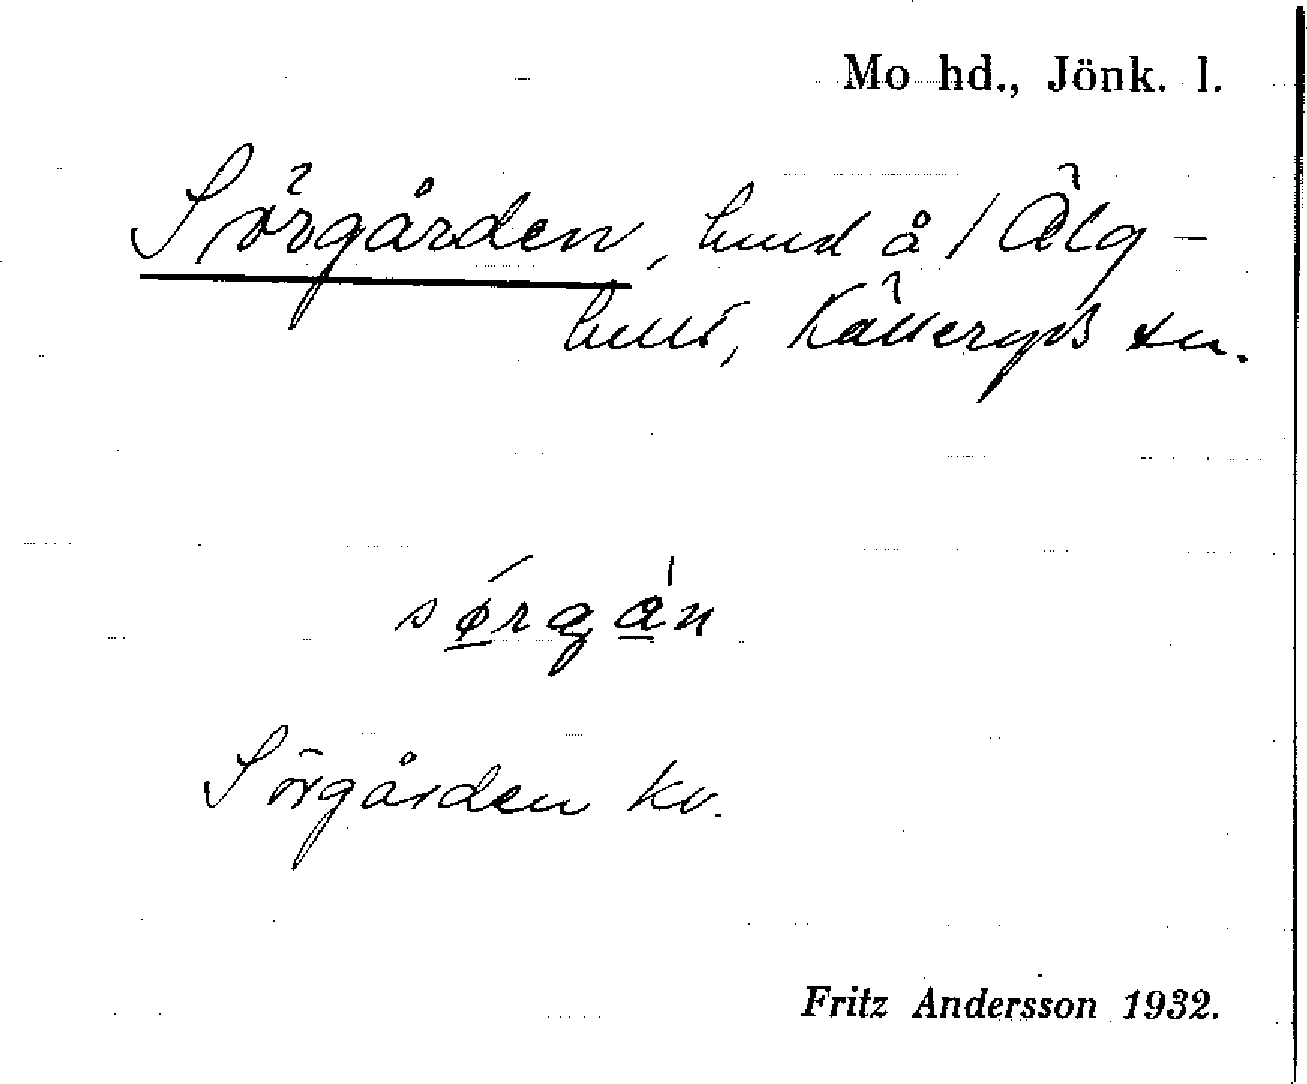 Mo hd., Jönk. l.
Sörgården, hmd å 1 Älg-
hult, Källeryds sn.
Sörgården kv.
Fritz Andersson 1932.